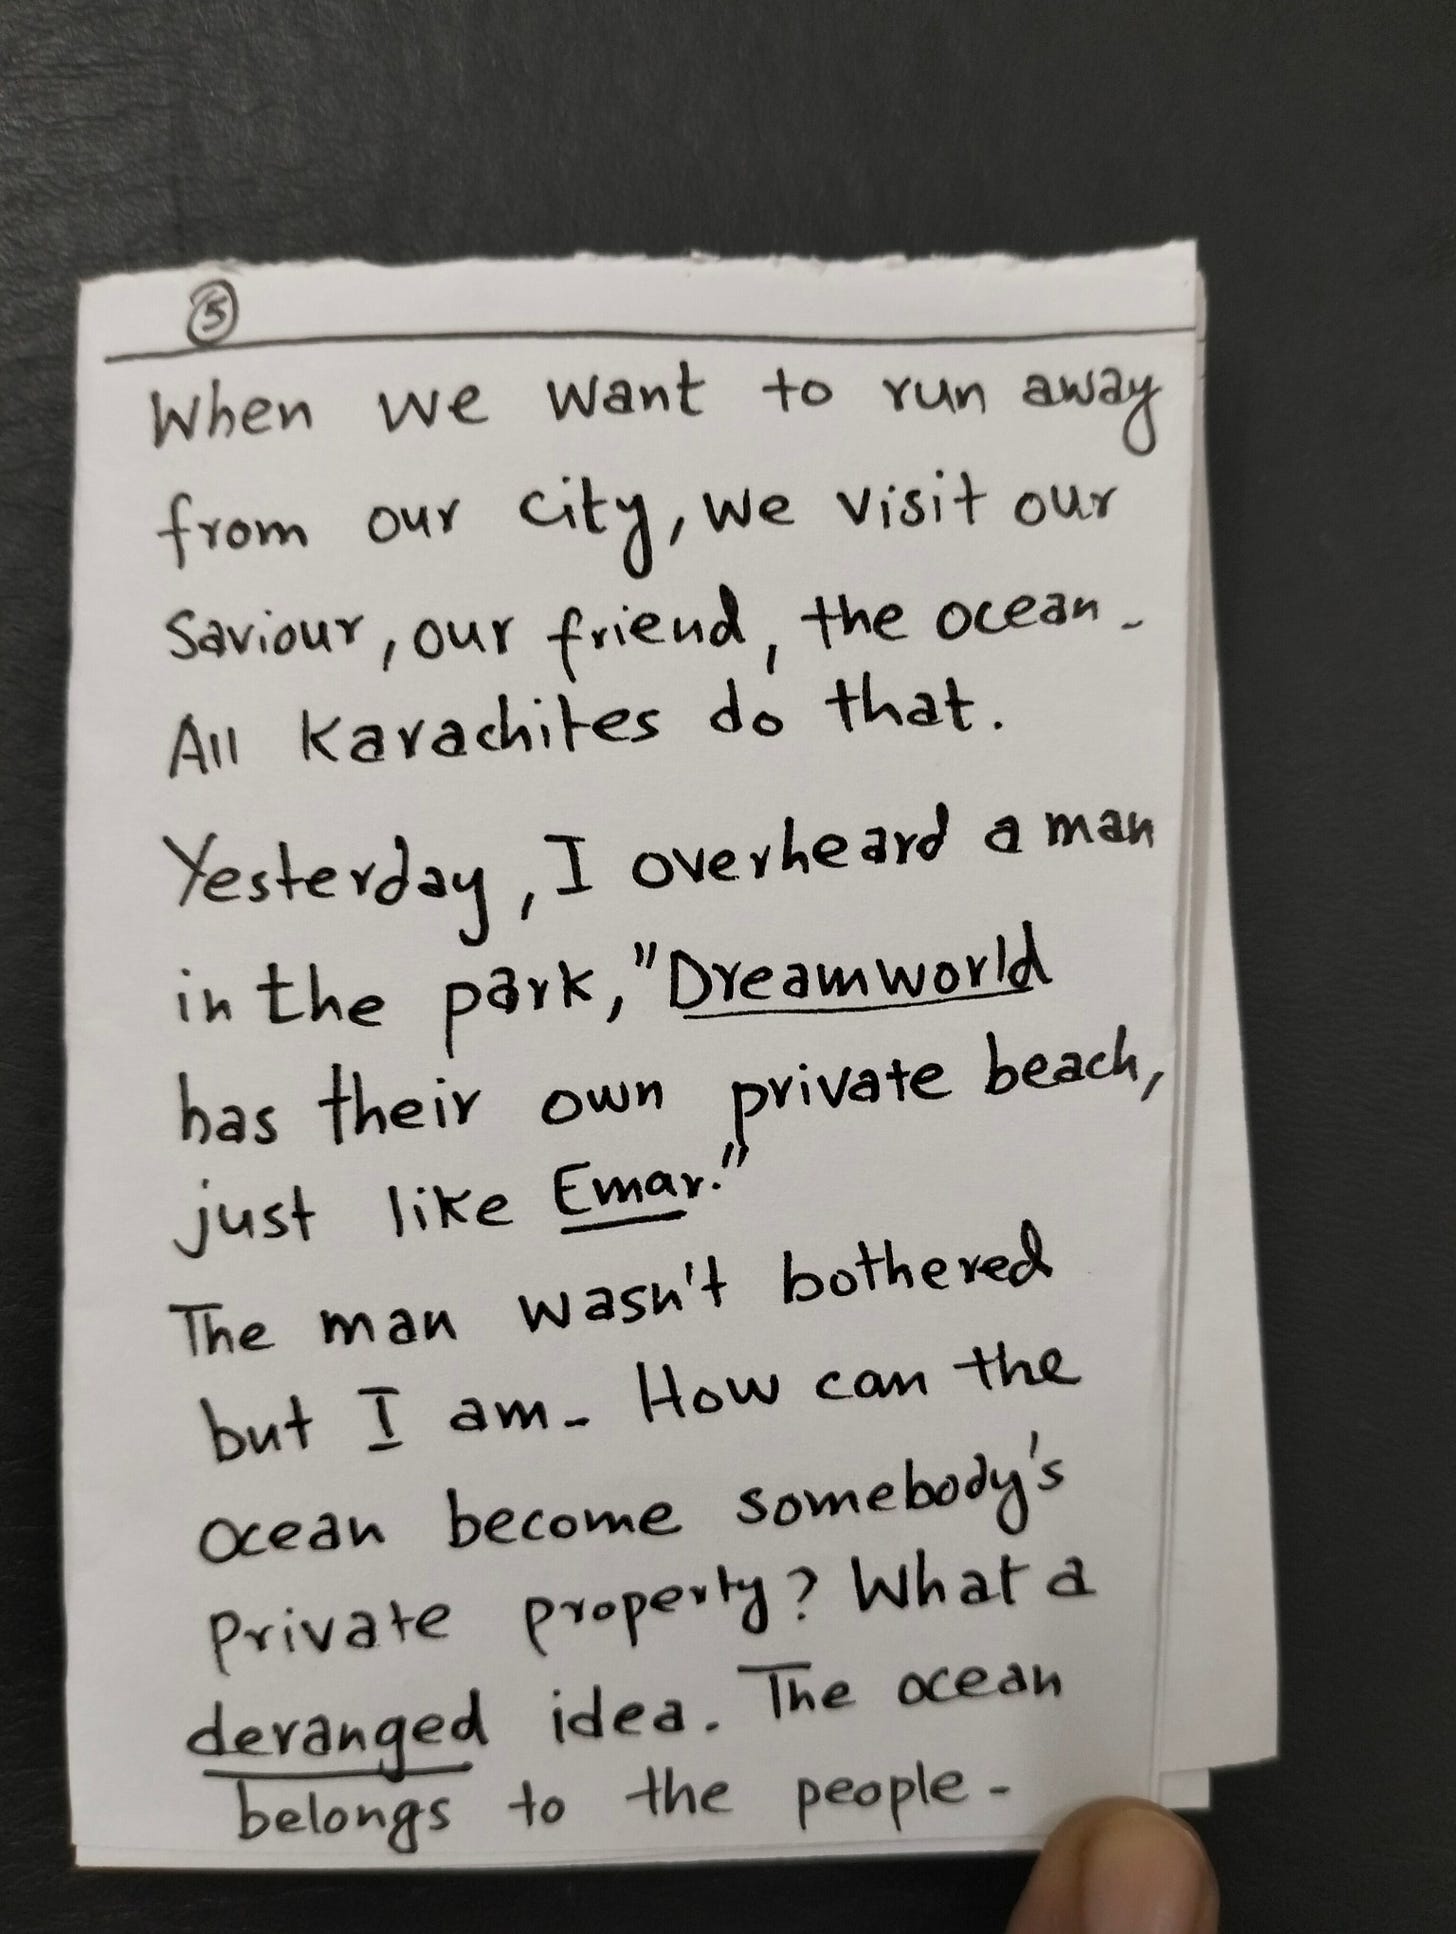 5
When we want to run away
from our city, we visit our
Saviour, our friend, the ocean -
All Karachites do that.
Yesterday, I overheard a man
in the park, "Dreamworld
has their own private beach,
just like Emar."
The man wasn't bothered
but I am - How can the
ocean become somebody's
private property? What a
deranged idea. The ocean
belongs to the people -